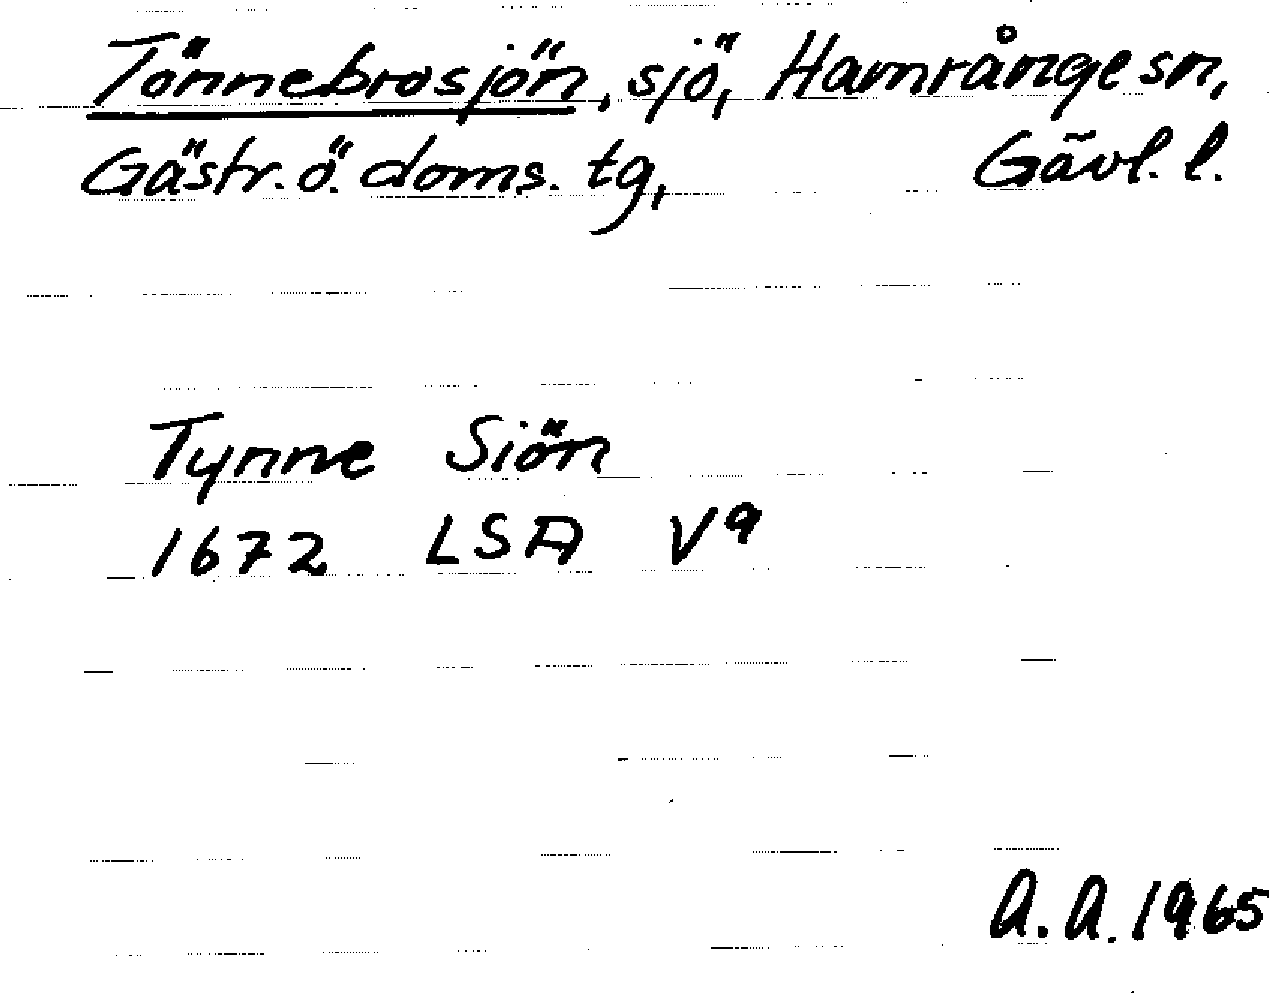 Tönnebrosjön, sjö, Hamrånge sn,
Gästr. ö. doms. tg, Gävl. l.
Tynne Siön
1672 LSA V9
A. A. 1965